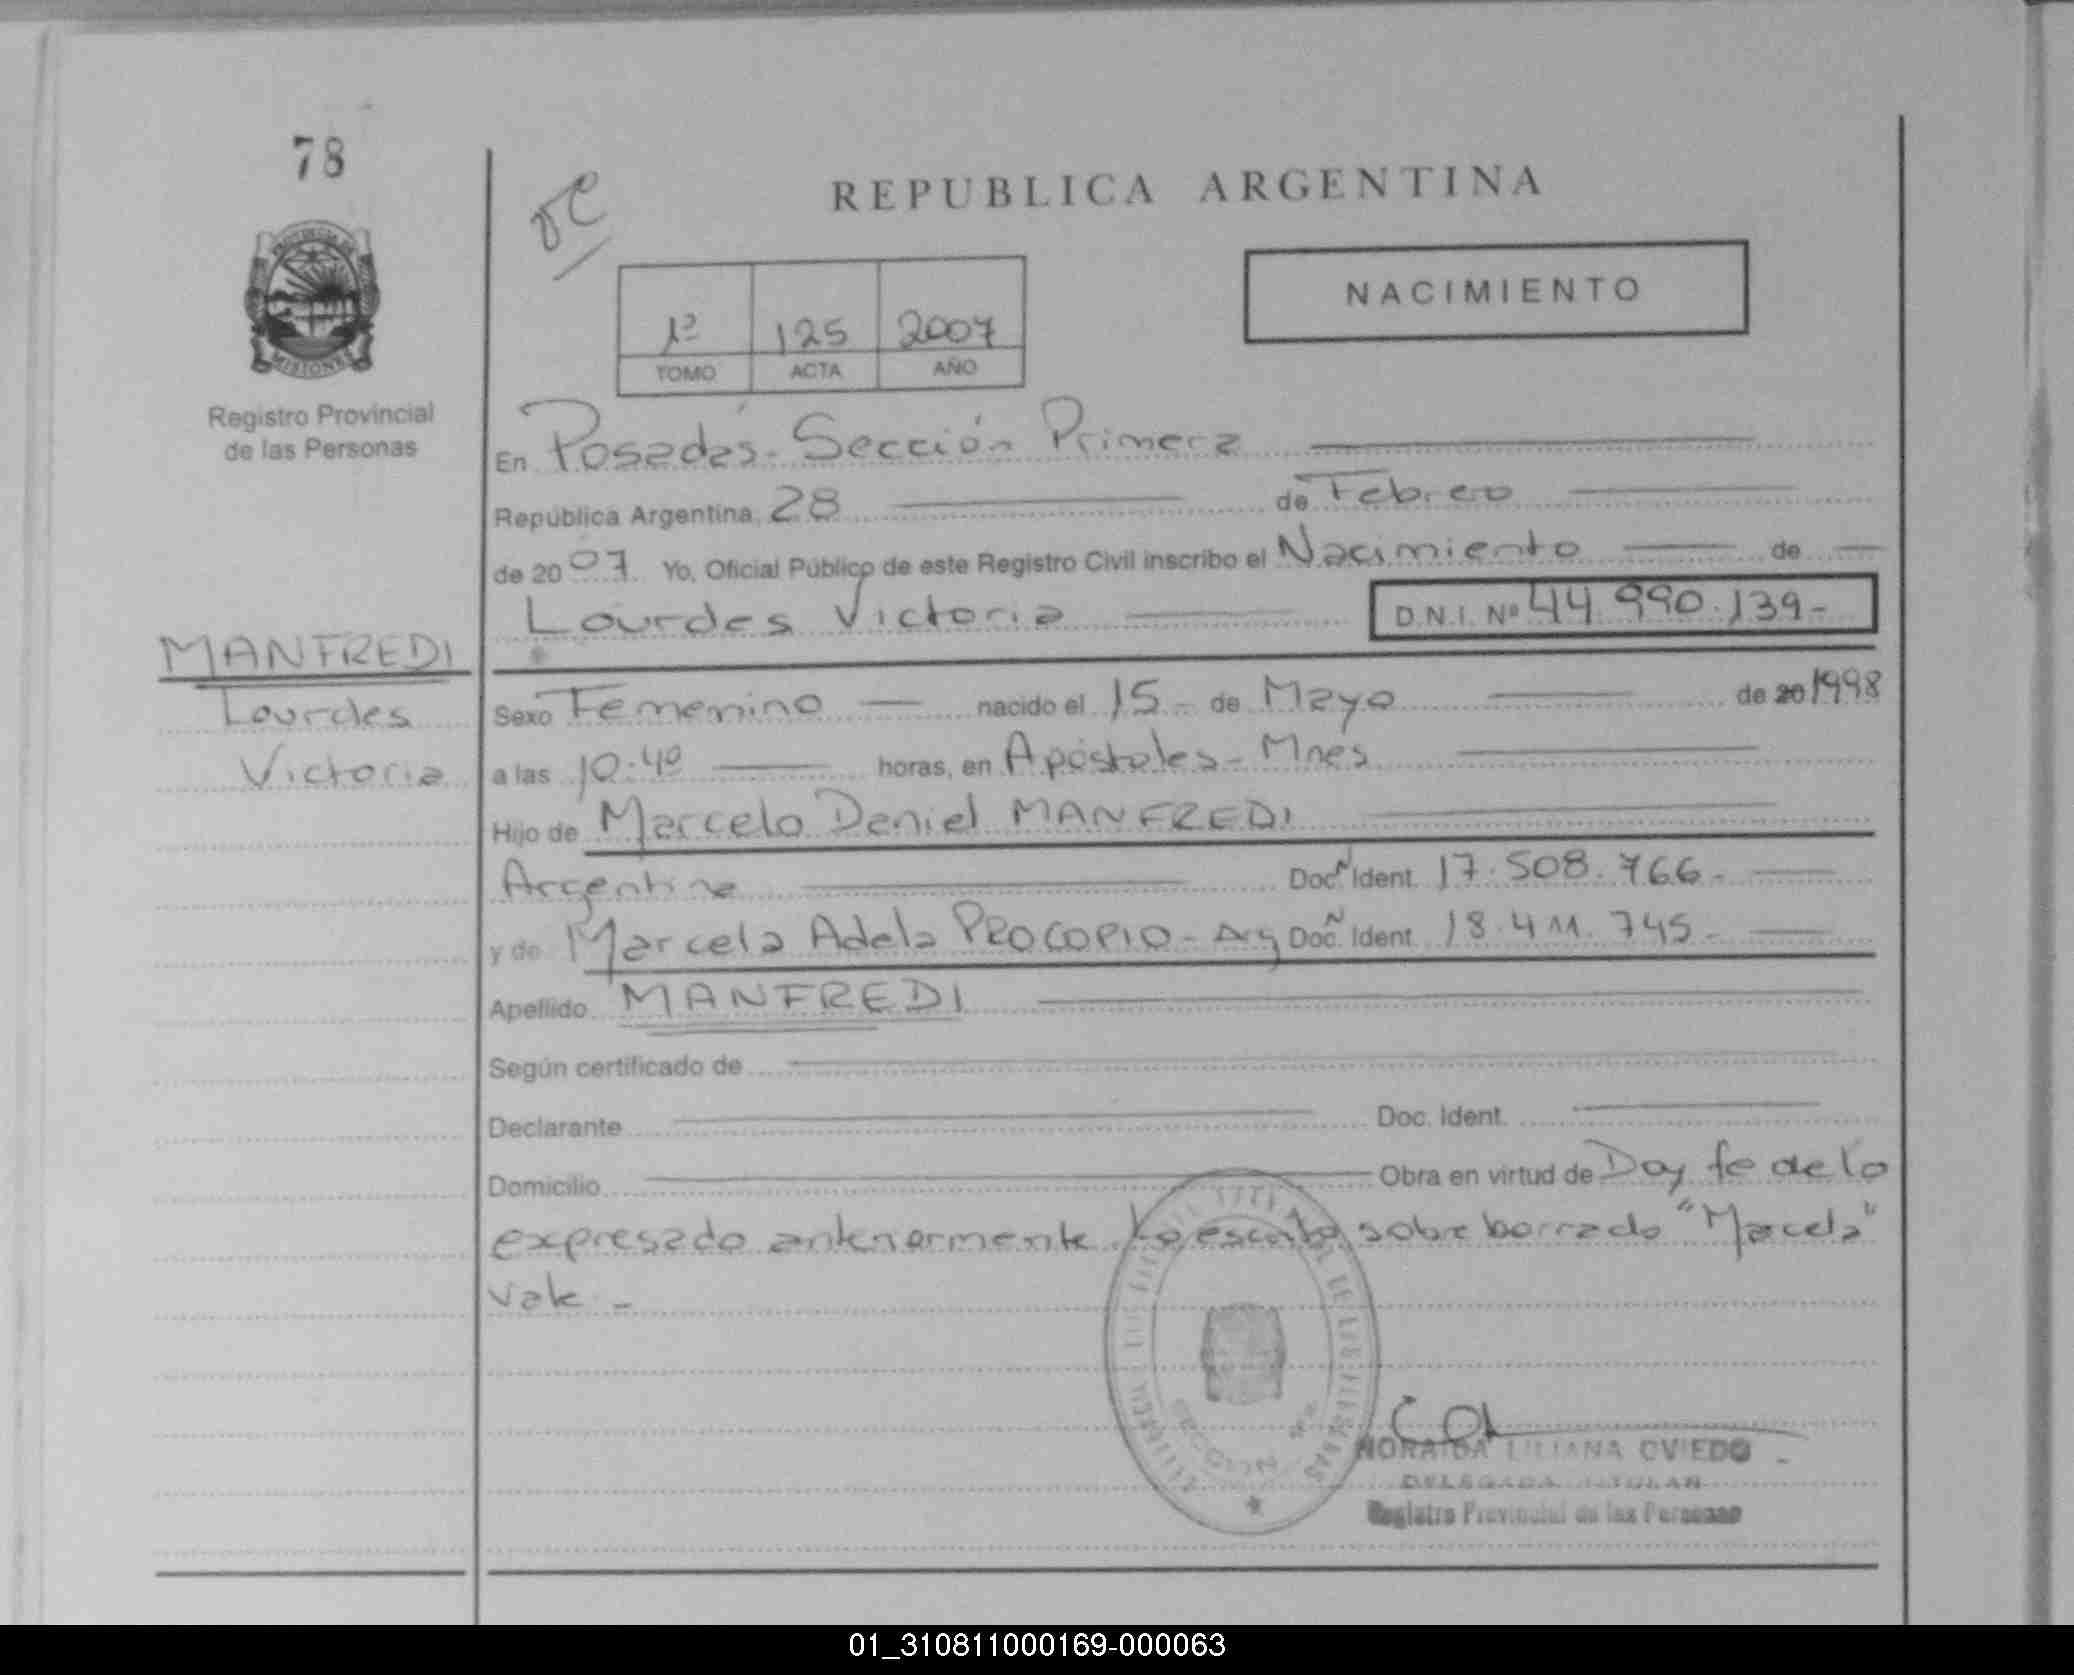 78
REPUBLICA ARGENTINA
NACIMIENTO
1º 125 2007
TOMO ACTA AÑO
PROVINCIA DE
MISIONES
Registro Provincial
de las Personas
En Posadas - Sección Primera
República Argentina, 28 de Febrero
de 2007. Yo, Oficial Público de este Registro Civil inscribo el Nacimiento de
Lourdes Victoria D.N.I. Nº 44.990.139-
MANFREDI
Lourdes
Victoria
Sexo Femenino nacido el 15 - de Mayo de 20 1998
a las 10.40 horas, en Apóstoles - Mnes
Hijo de Marcelo Daniel MANFREDI
Argentina Doc. Ident. 17.508.766 -
y de Marcela Adela PROCOPIO - Arg Doc. Ident. 18.411.745 -
Apellido MANFREDI
Según certificado de
Declarante Doc. Ident.
Domicilio Obra en virtud de Doy fe de lo
expresado anteriormente. Lo escrito sobre borrado "Marcela"
vale -
NORAIDA LILIANA OVIEDO
DELEGADA TITULAR
Registro Provincial de las Personas
01_310811000169-000063